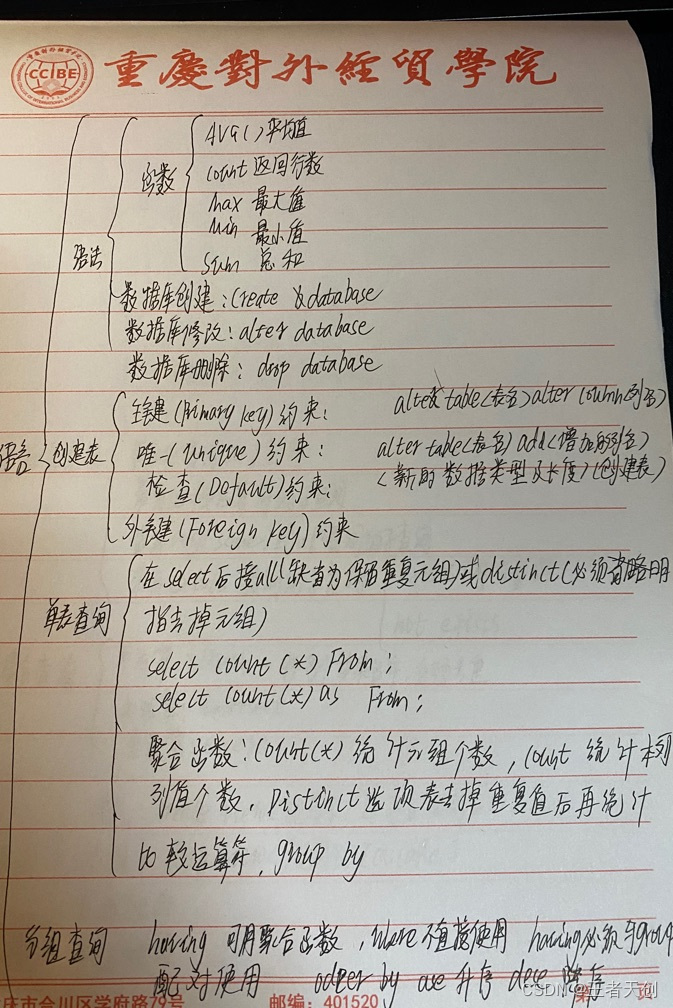 CCIBE
重慶對外經貿學院
函数
AVG()平均值
count 返回行数
max 最大值
Min 最小值
sum 总和
语法
数据库创建:Create database
数据库修改:alter database
数据库删除:drop database
语言
创建表
主键(Primary key)约束: alter table(表名)alter column(列名)
唯一(unique)约束: alter table(表名)add(增加的列名)
检查(Default)约束: (新的数据类型及长度)(创建表)
外键(Foreign key)约束
单表查询
在select后接all(缺省为保留重复元组)或distinct(必须省略用
指去掉元组)
select count(*) From;
select count(*) as From;
聚合函数:count(*)统计元组个数,count 统计本列
列值个数,Distinct选项表去掉重复值后再统计
比较运算符,group by
分组查询 having可用聚合函数,where不直接使用 having必须与group
配对使用 odeer by 升序 降序
庆市合川区学府路79号 邮编:401520 第 页
CSDN @王者天创